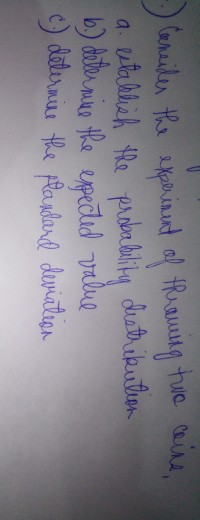 .) Consider the experiment of throwing two coins,
a. establish the probability distribution
b.) determine the expected value
c.) determine the standard deviation